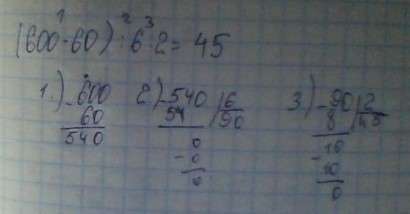 1 2 3
(600-60) : 6 : 2 = 45
1.) -600 2.) -540 |6 3.) -90 |2
60 54 |90 8 |45
540 0 10
-0 -10
0 0